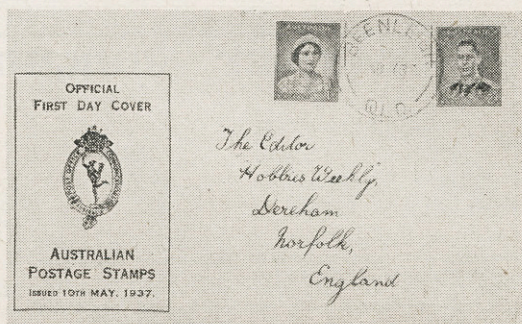 OFFICIAL
FIRST DAY COVER
AUSTRALIAN
POSTAGE STAMPS
ISSUED 10TH MAY, 1937.
BEENLEIGH
QLD
The Editor
Hobbies Weekly,
Dereham
Norfolk,
England